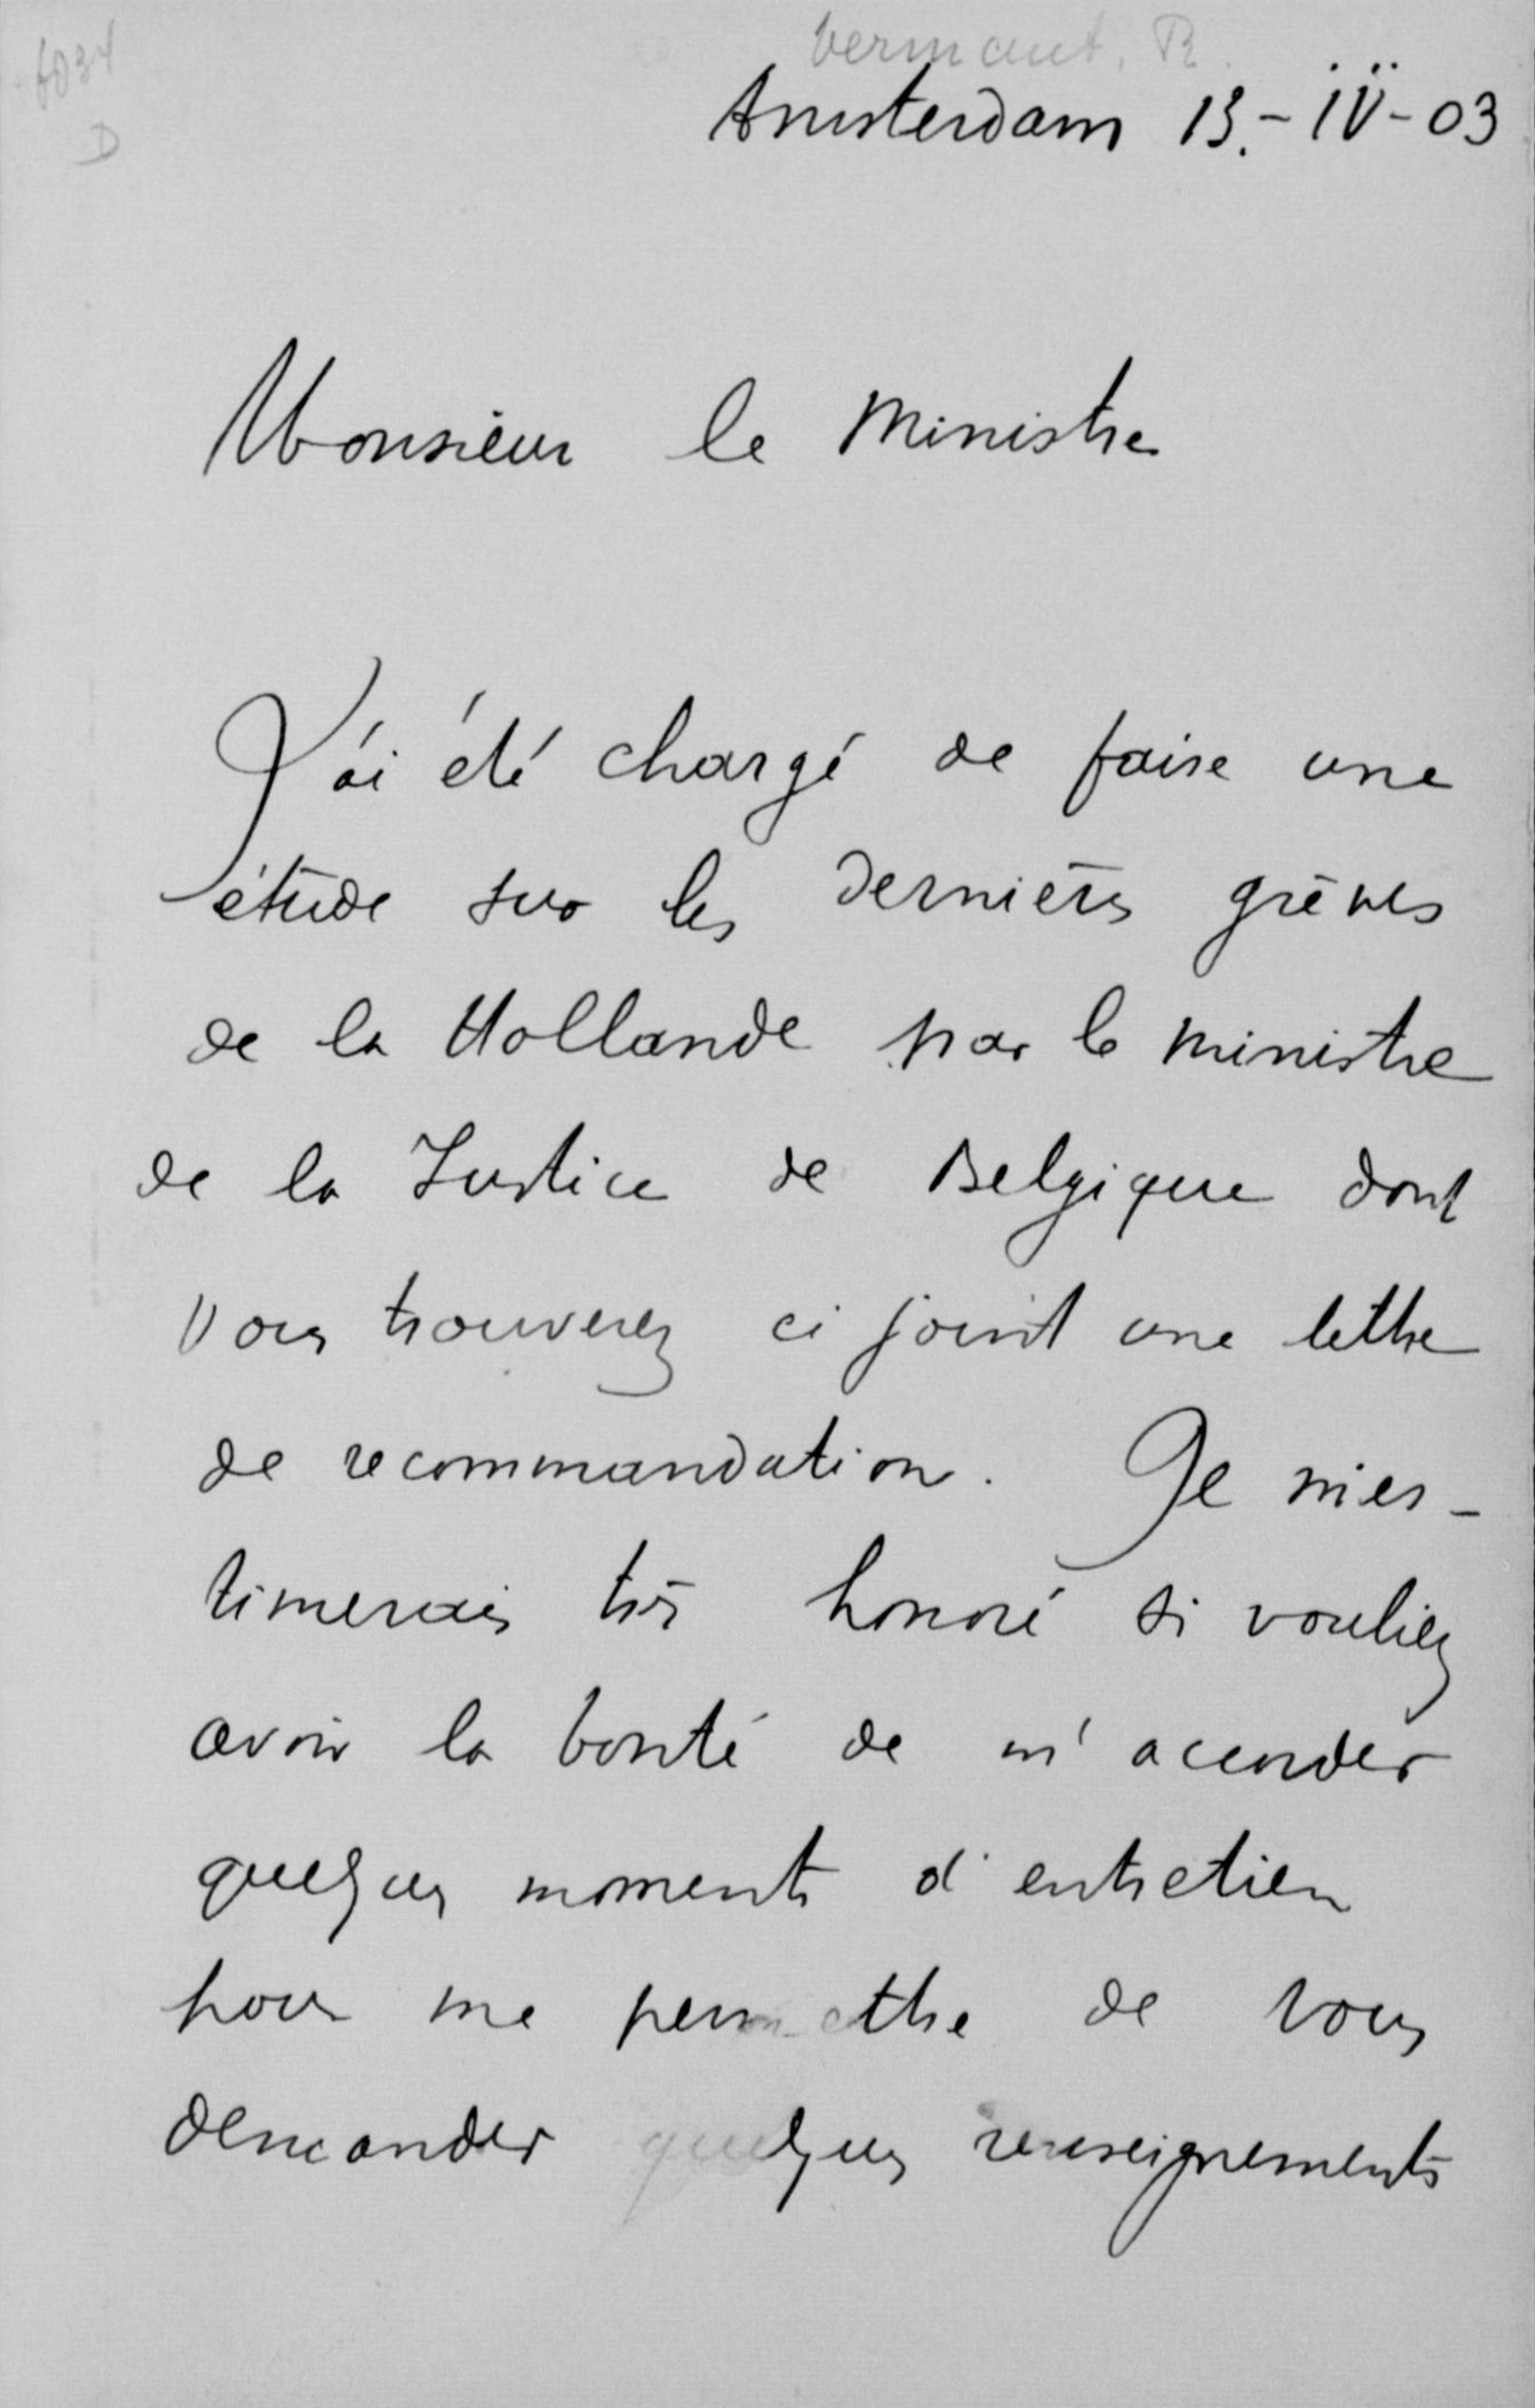 Vermaut. R.
Amsterdam 13.-IV-03
Monsieur le Ministre
J'ai été chargé de faire une
étude sur les dernières grèves
de la Hollande par le ministre
de la Justice de Belgique dont
vous trouverez ci joint une lettre
de recommandation. Je m'es-
timerais très honoré si vouliez
avoir la bonté de m'accorder
quelques moments d'entretien
pour me permettre de vous
demander quelques renseignements